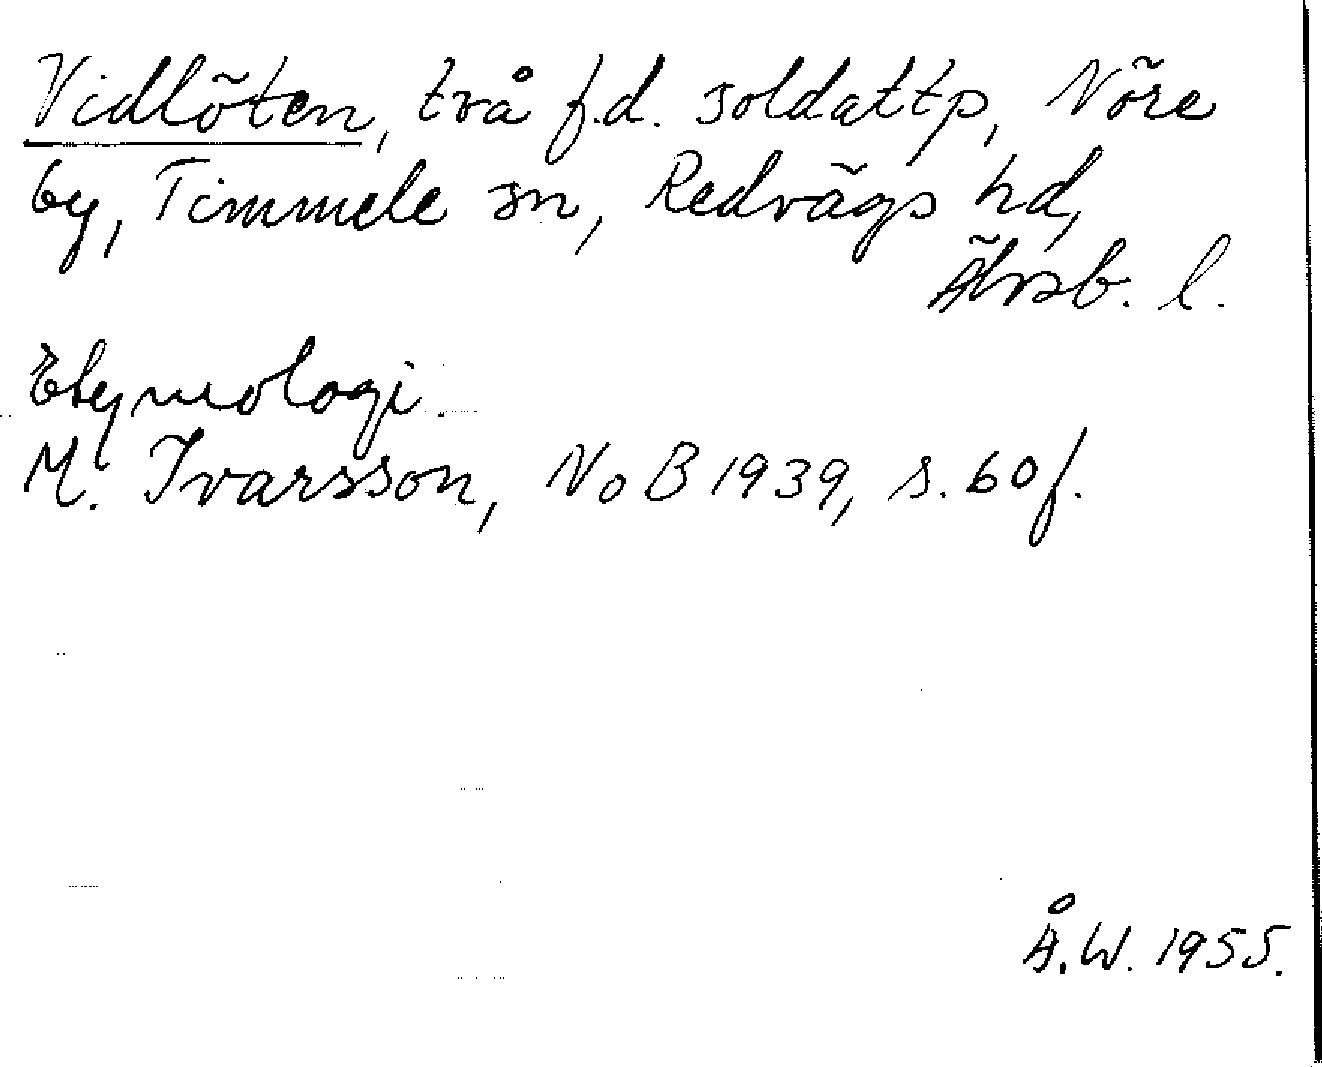 Vidlöten, två f.d. soldattp, Nöre
by, Timmele sn, Redvägs hd,
Älvsb. l.
Etymologi.
M. Ivarsson, NoB 1939, s. 60 f.
Å.W. 1955.